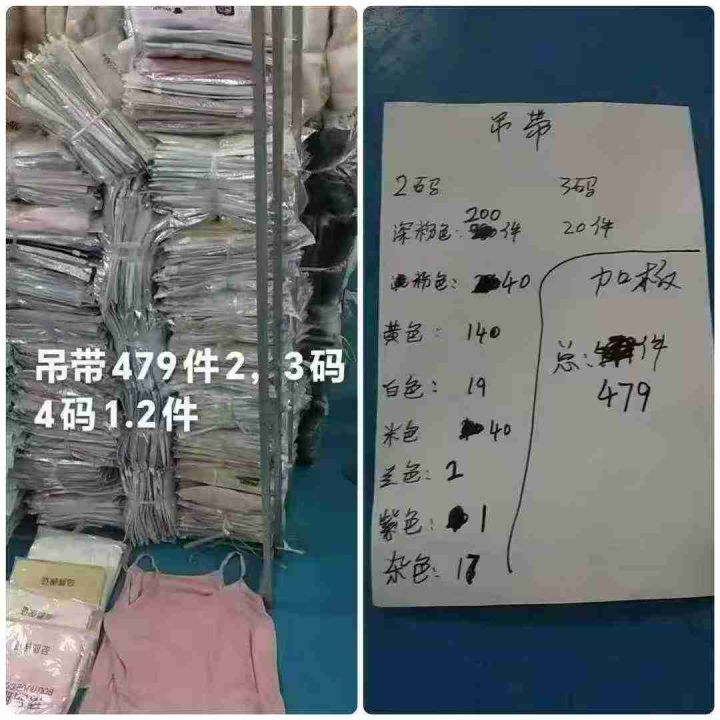 吊带479件2，3码
4码1.2件
吊带
2码 3码
深粉色：200件 20件
粉色：40
黄色：140
白色：19
米色 40
兰色：2
紫色：1
杂色：17
加木及
总：件
479